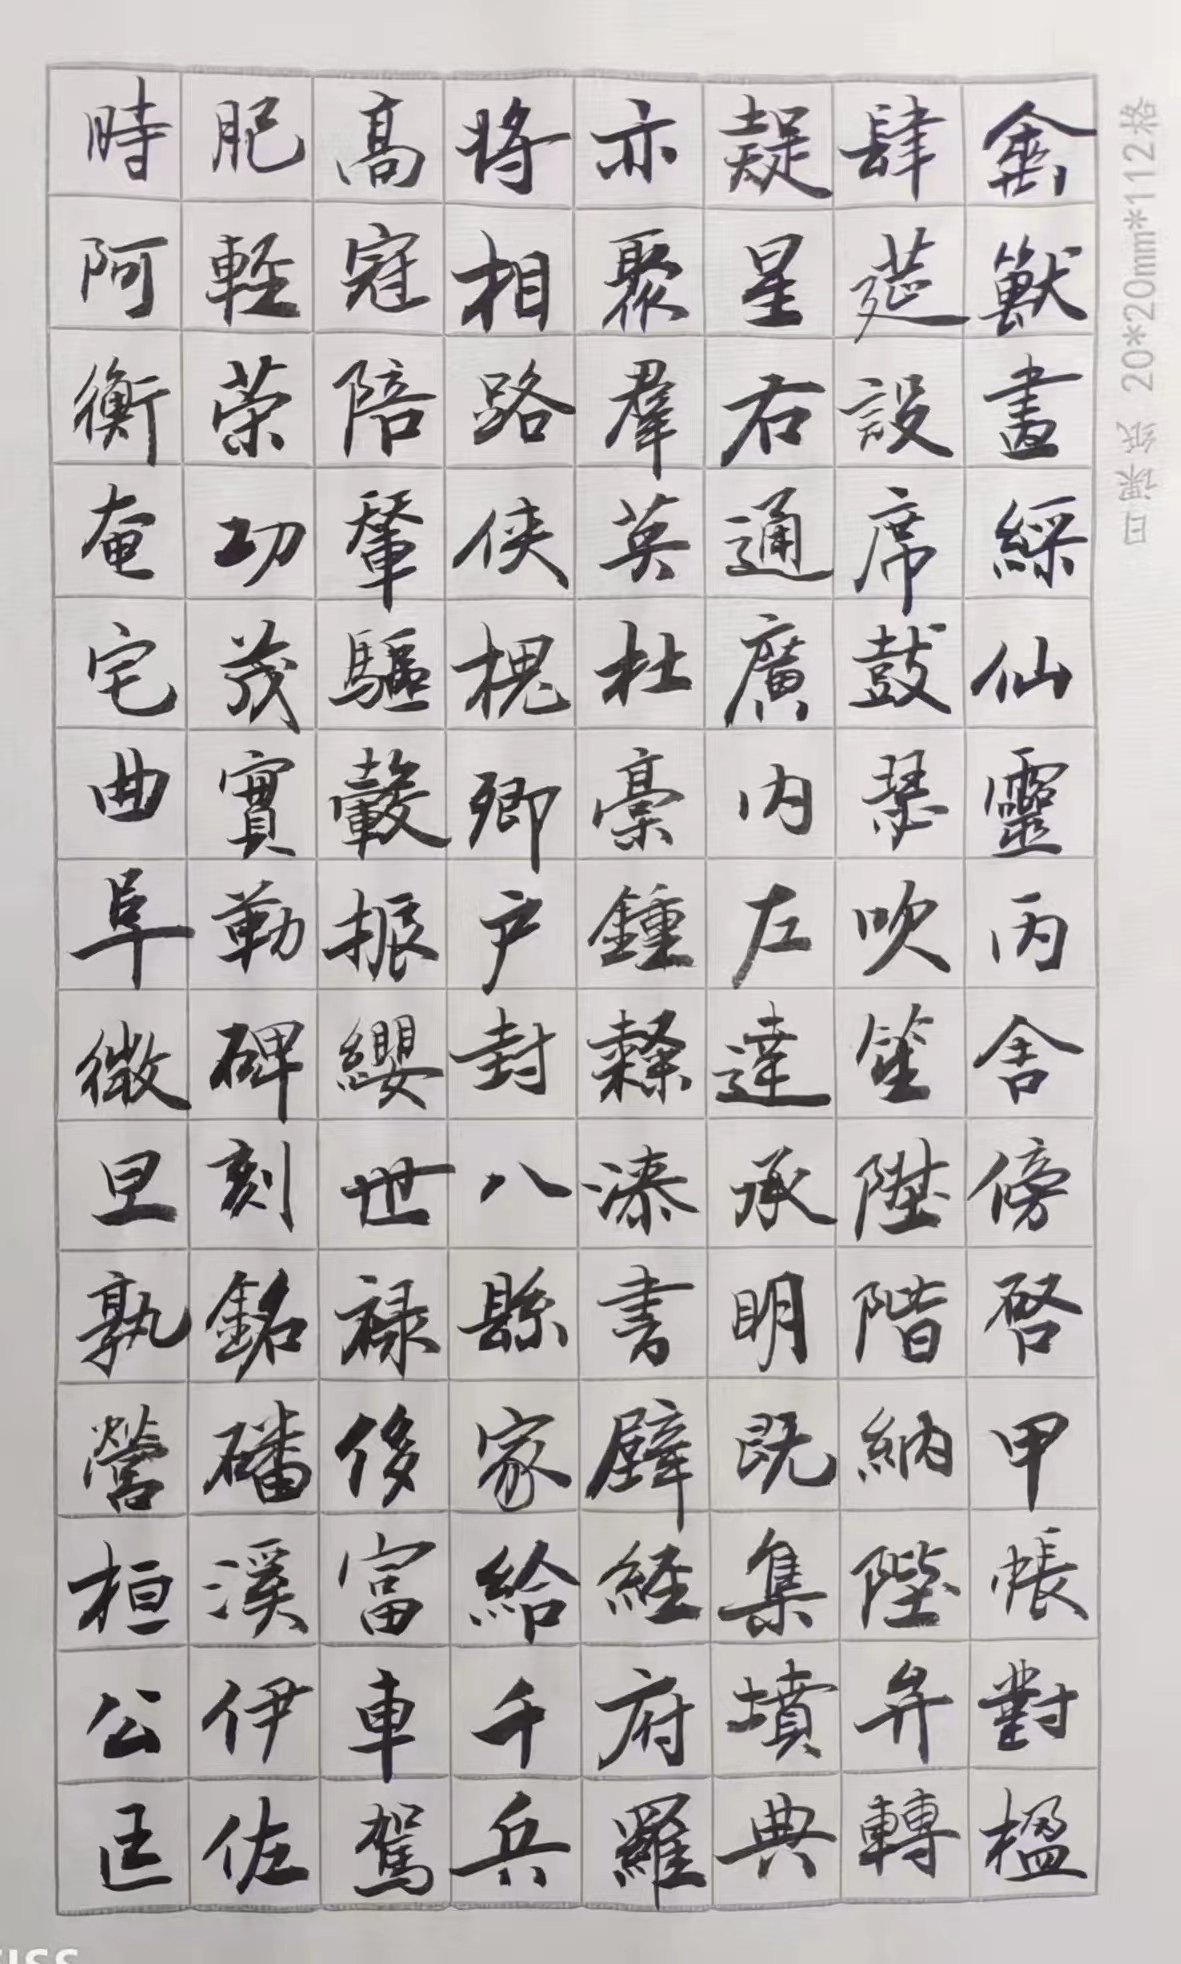 禽獸畫綵仙靈丙舍傍啓甲帳對楹
肆筵設席鼓瑟吹笙陞階納陛弁轉
疑星右通廣內左達承明既集墳典
亦聚群英杜稾鍾隸漆書壁經府羅
將相路俠槐卿户封八縣家給千兵
高冠陪輦驅轂振纓世祿侈富車駕
肥輕策功茂實勒碑刻銘磻溪伊佐
時阿衡奄宅曲阜微旦孰營桓公匡
日课纸 20*20mm*112格